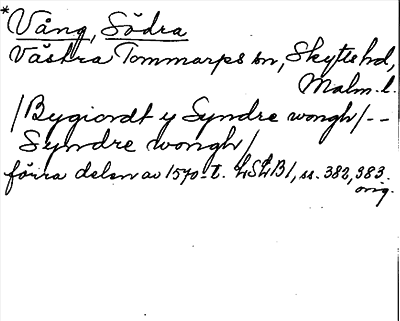 * Vång, Södra
Västra Tommarps sn, Skytts hd,
Malm. l.
/Bygiordt y Syndre wongh/--
Syndre wongh/
förra delen av 1570-t. LSLB1, ss. 382, 383.
orig.